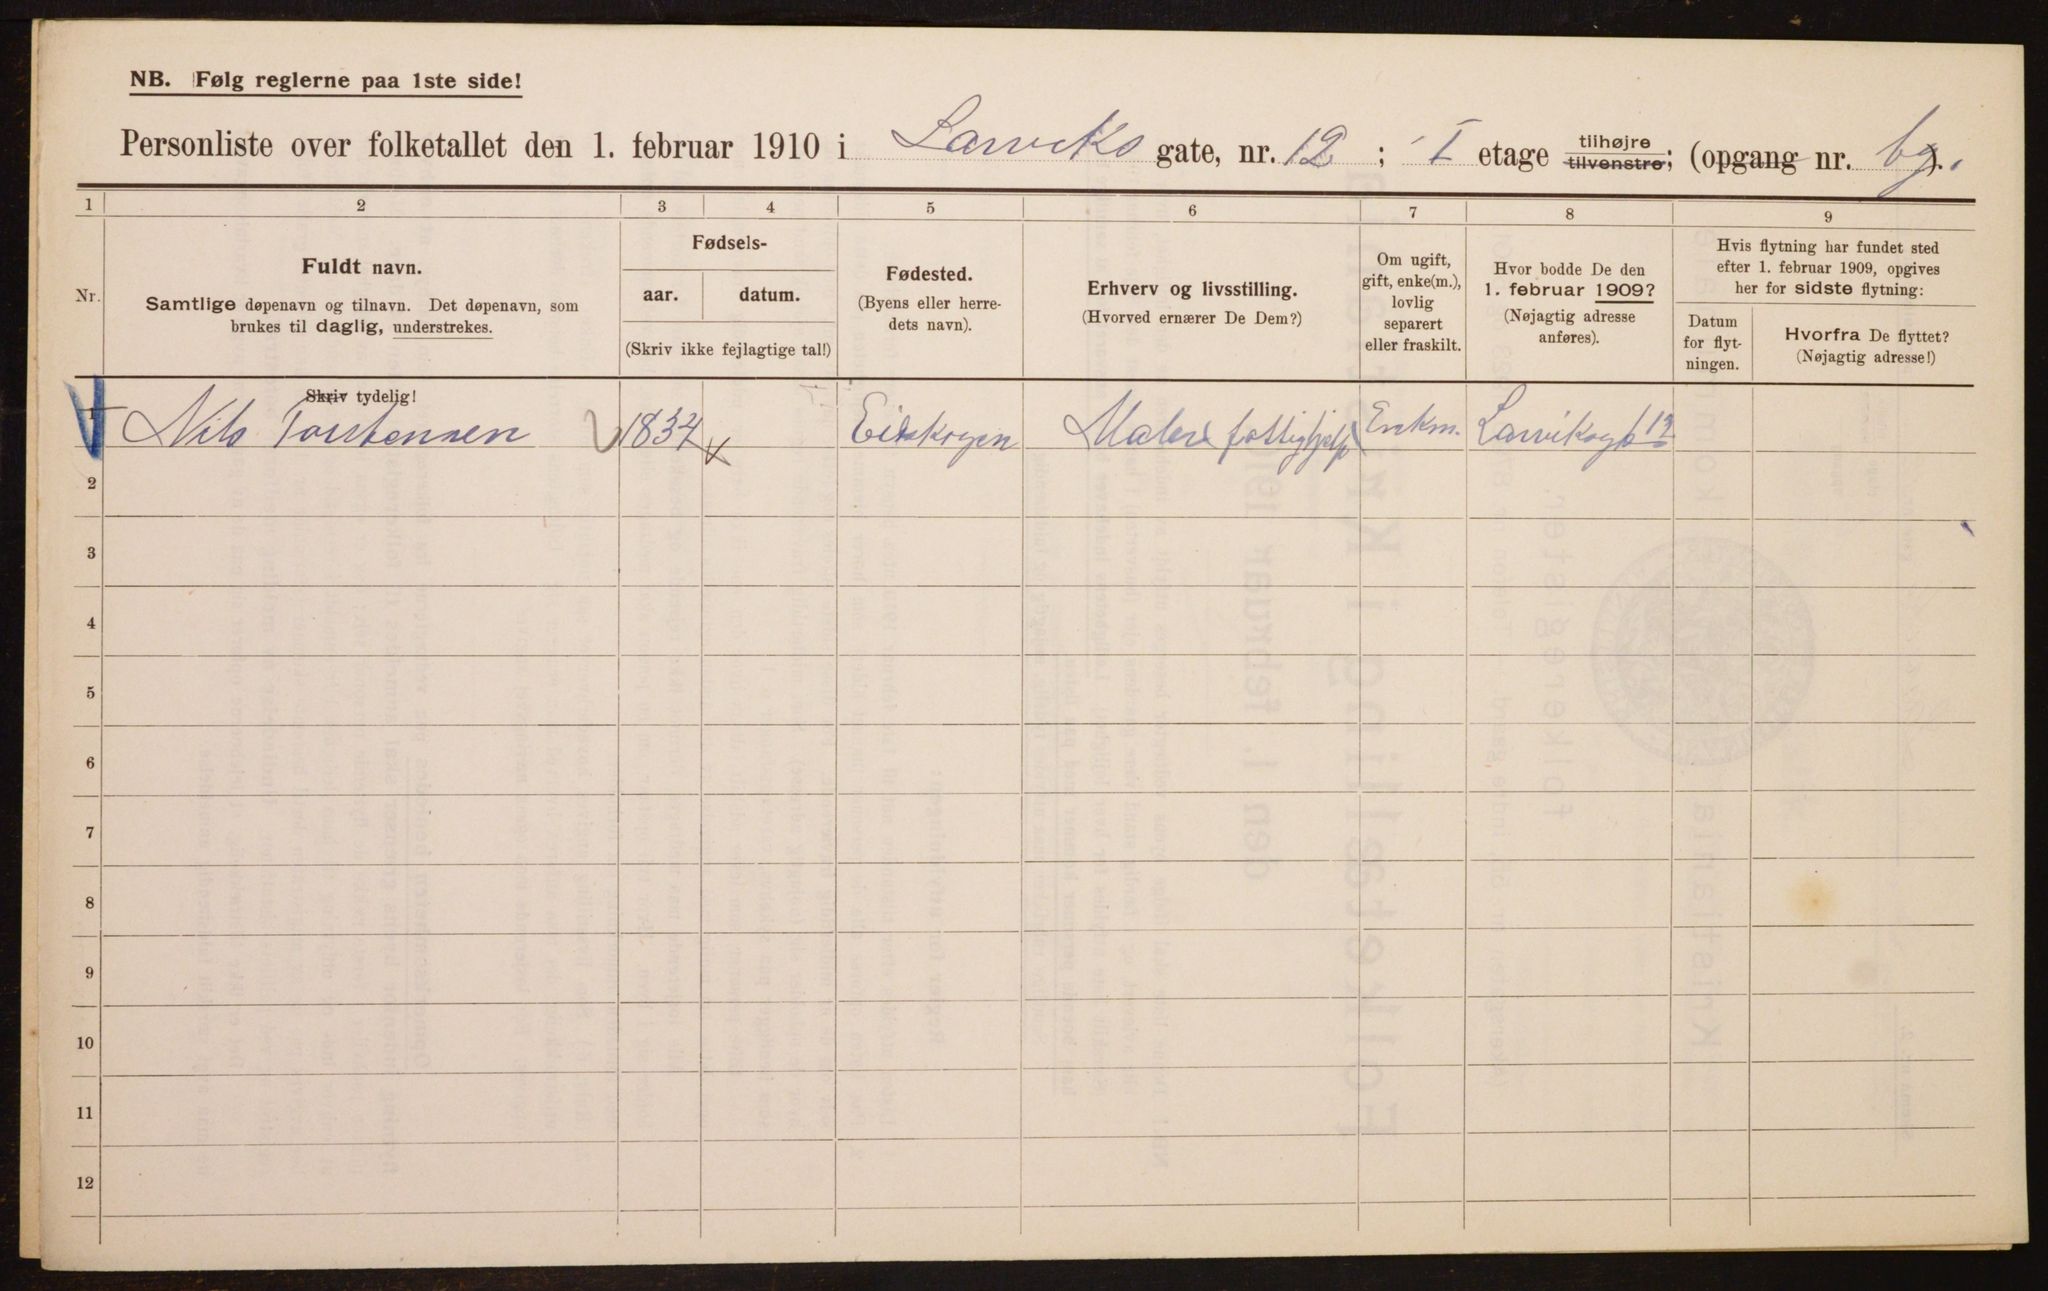 NB. Følg reglerne paa 1ste side!
Personliste over folketallet den 1. februar 1910 i Larviks gate, nr. 12; I etage tilhøjre tilvenstre; (opgang nr. bg.).
1 2 3 4 5 6 7 8 9
Nr.
Fuldt navn.
Samtlige døpenavn og tilnavn. Det døpenavn, som
brukes til daglig, understrekes.
Fødsels-
aar. datum.
(Skriv ikke fejlagtige tal!)
Fødested.
(Byens eller herre-
dets navn).
Erhverv og livsstilling.
(Hvorved ernærer De Dem?)
Om ugift,
gift, enke(m.),
lovlig
separert
eller fraskilt.
Hvor bodde De den
1. februar 1909?
(Nøjagtig adresse
anføres).
Hvis flytning har fundet sted
efter 1. februar 1909, opgives
her for sidste flytning:
Datum
for flyt-
ningen.
Hvorfra De flyttet?
(Nøjagtig adresse!)
Skriv tydelig!
1 Nils Torstensen 1834 Eidskogen Maler (fattighjelp) Enkm. Larviksgt 12
2
3
4
5
6
7
8
9
10
11
12